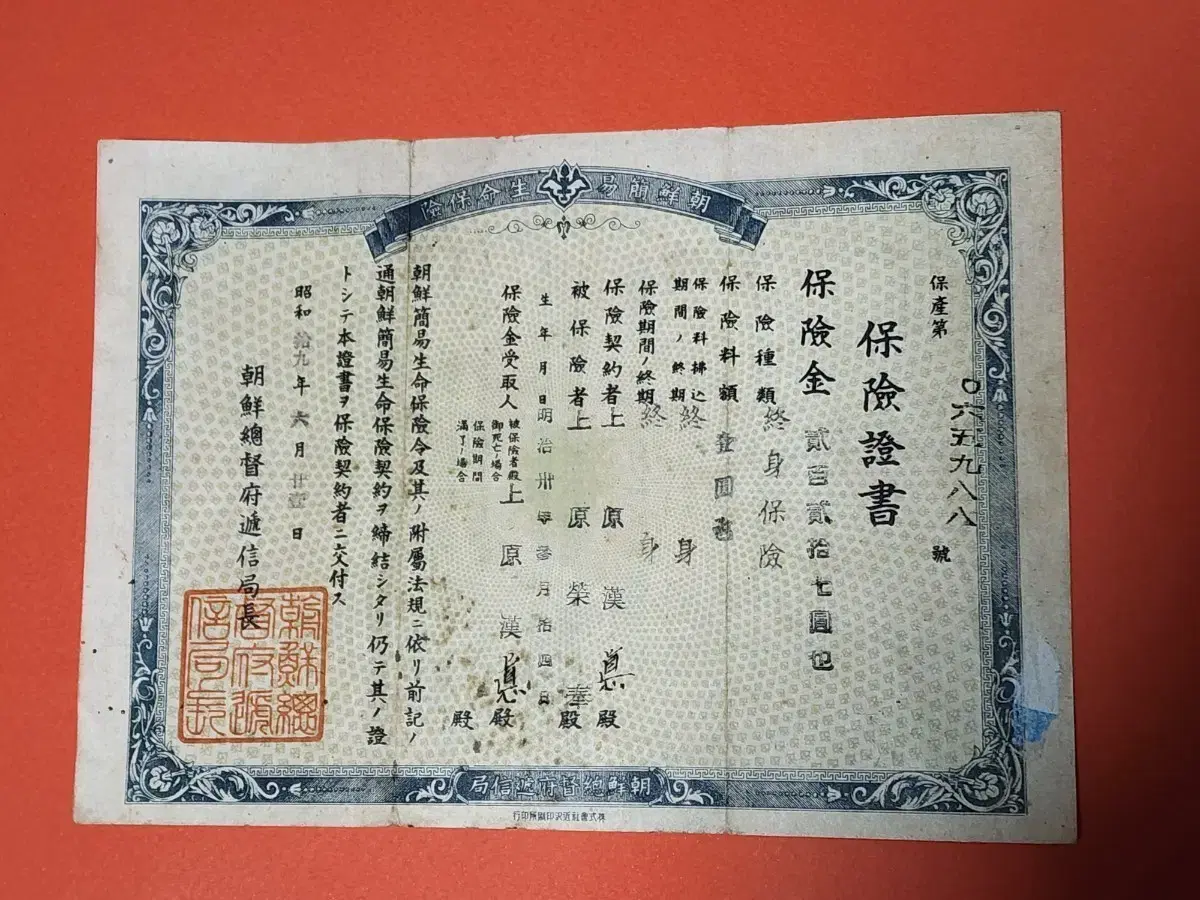 朝鮮簡易生命保險
保產第
〇六五九八八
號
保險證書
保險金 貳百貳拾七圓也
保險種類 終身保險
保險料額 壹圓
保險料拂込
期間ノ終期 終身
保險期間ノ終期 終身
保險契約者 上原漢 殿
被保險者 上原榮奉 殿
生年月日 明治卅年參月拾四日
保險金受取人
被保險者殿
御死亡ノ場合 上原漢 殿
保險期間
滿了ノ場合 殿
朝鮮簡易生命保險令及其ノ附屬法規ニ依リ前記ノ
通朝鮮簡易生命保險契約ヲ締結シタリ仍テ其ノ證
トシテ本證書ヲ保險契約者ニ交付ス
昭和拾九年六月廿壹日
朝鮮總督府遞信局長
朝鮮總督府遞信局長
朝鮮總督府遞信局